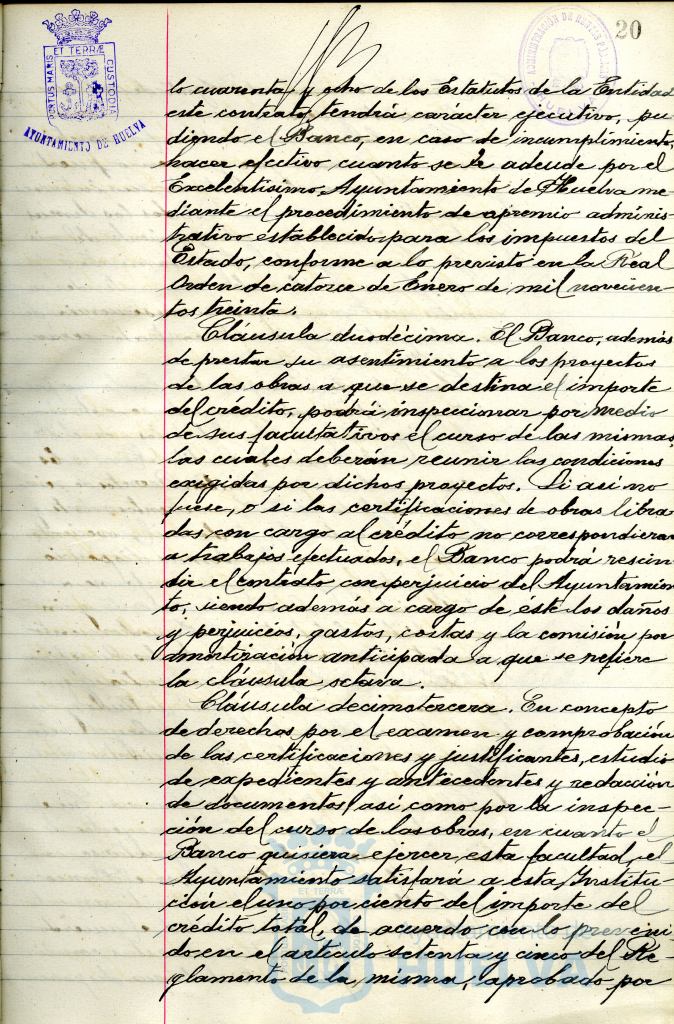 20
PORTUS MARIS ET TERRÆ CUSTODIA
AYUNTAMIENTO DE HUELVA
ADMINISTRACIÓN DE RENTAS PÚBLICAS
HUELVA
lo cuarenta y ocho de los Estatutos de la Entidad
este contrato tendrá carácter ejecutivo, pu-
diendo el Banco, en caso de incumplimiento,
hacer efectivo cuanto se le adeude por el
Excelentísimo Ayuntamiento de Huelva me
diante el procedimiento de apremio adminis-
trativo establecido para los impuestos del
Estado, conforme a lo previsto en la Real
Orden de catorce de Enero de mil novecien-
tos treinta.
Cláusula duodécima. El Banco, además
de prestar su asentimiento a los proyectos
de las obras a que se destina el importe
del crédito, podrá inspeccionar por medio
de sus facultativos el curso de las mismas,
las cuales deberán reunir las condiciones
exigidas por dichos proyectos. Si así no
fuese, o si las certificaciones de obras libra
das con cargo al crédito no correspondieran
a trabajos efectuados, el Banco podrá rescin
dir el contrato con perjuicio del Ayuntamien
to, siendo además a cargo de éste los daños
y perjuicios, gastos, costas y la comisión por
amortización anticipada a que se refiere
la cláusula octava.
Cláusula decimotercera. En concepto
de derechos por el examen y comprobación
de las certificaciones y justificantes, estudio
de expedientes y antecedentes y redacción
de documentos, así como por la inspec-
ción del curso de las obras, en cuanto el
Banco quisiera ejercer esta facultad, el
Ayuntamiento satisfará a esta Institu-
ción el uno por ciento del importe del
crédito total, de acuerdo con lo preveni
do en el artículo setenta y cinco del Re-
glamento de la misma, aprobado por